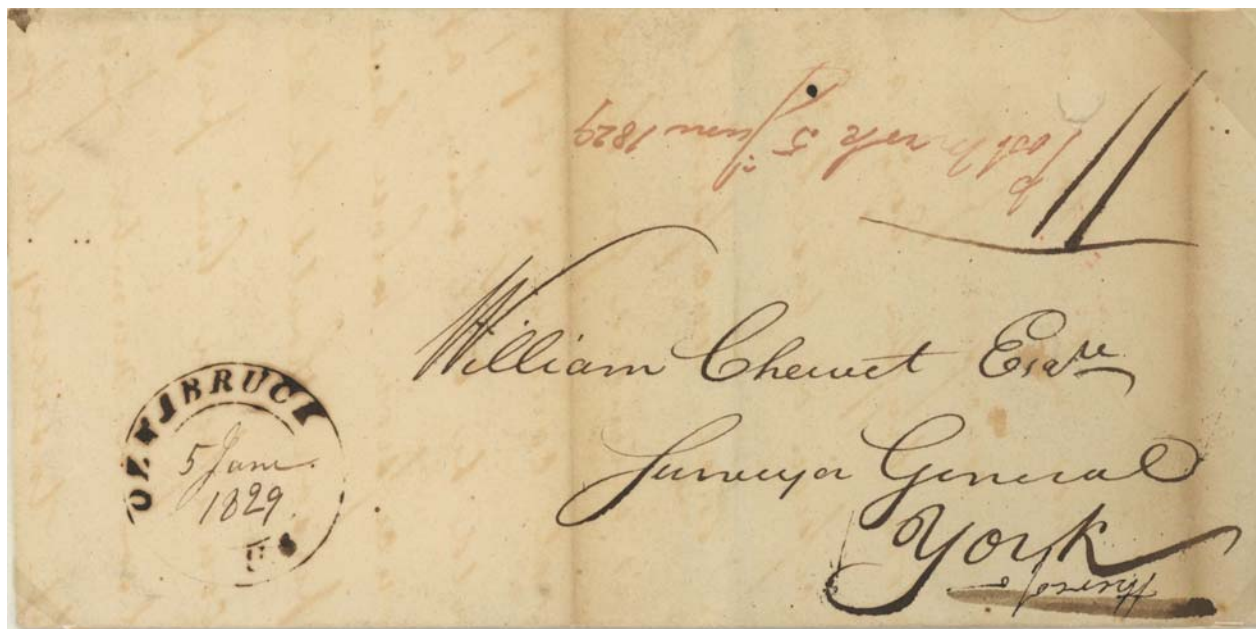 Post mark 5 June 1829
11
William Chewet Esqre
Surveyor General
York
OZNABRUCK
5 June.
1829.